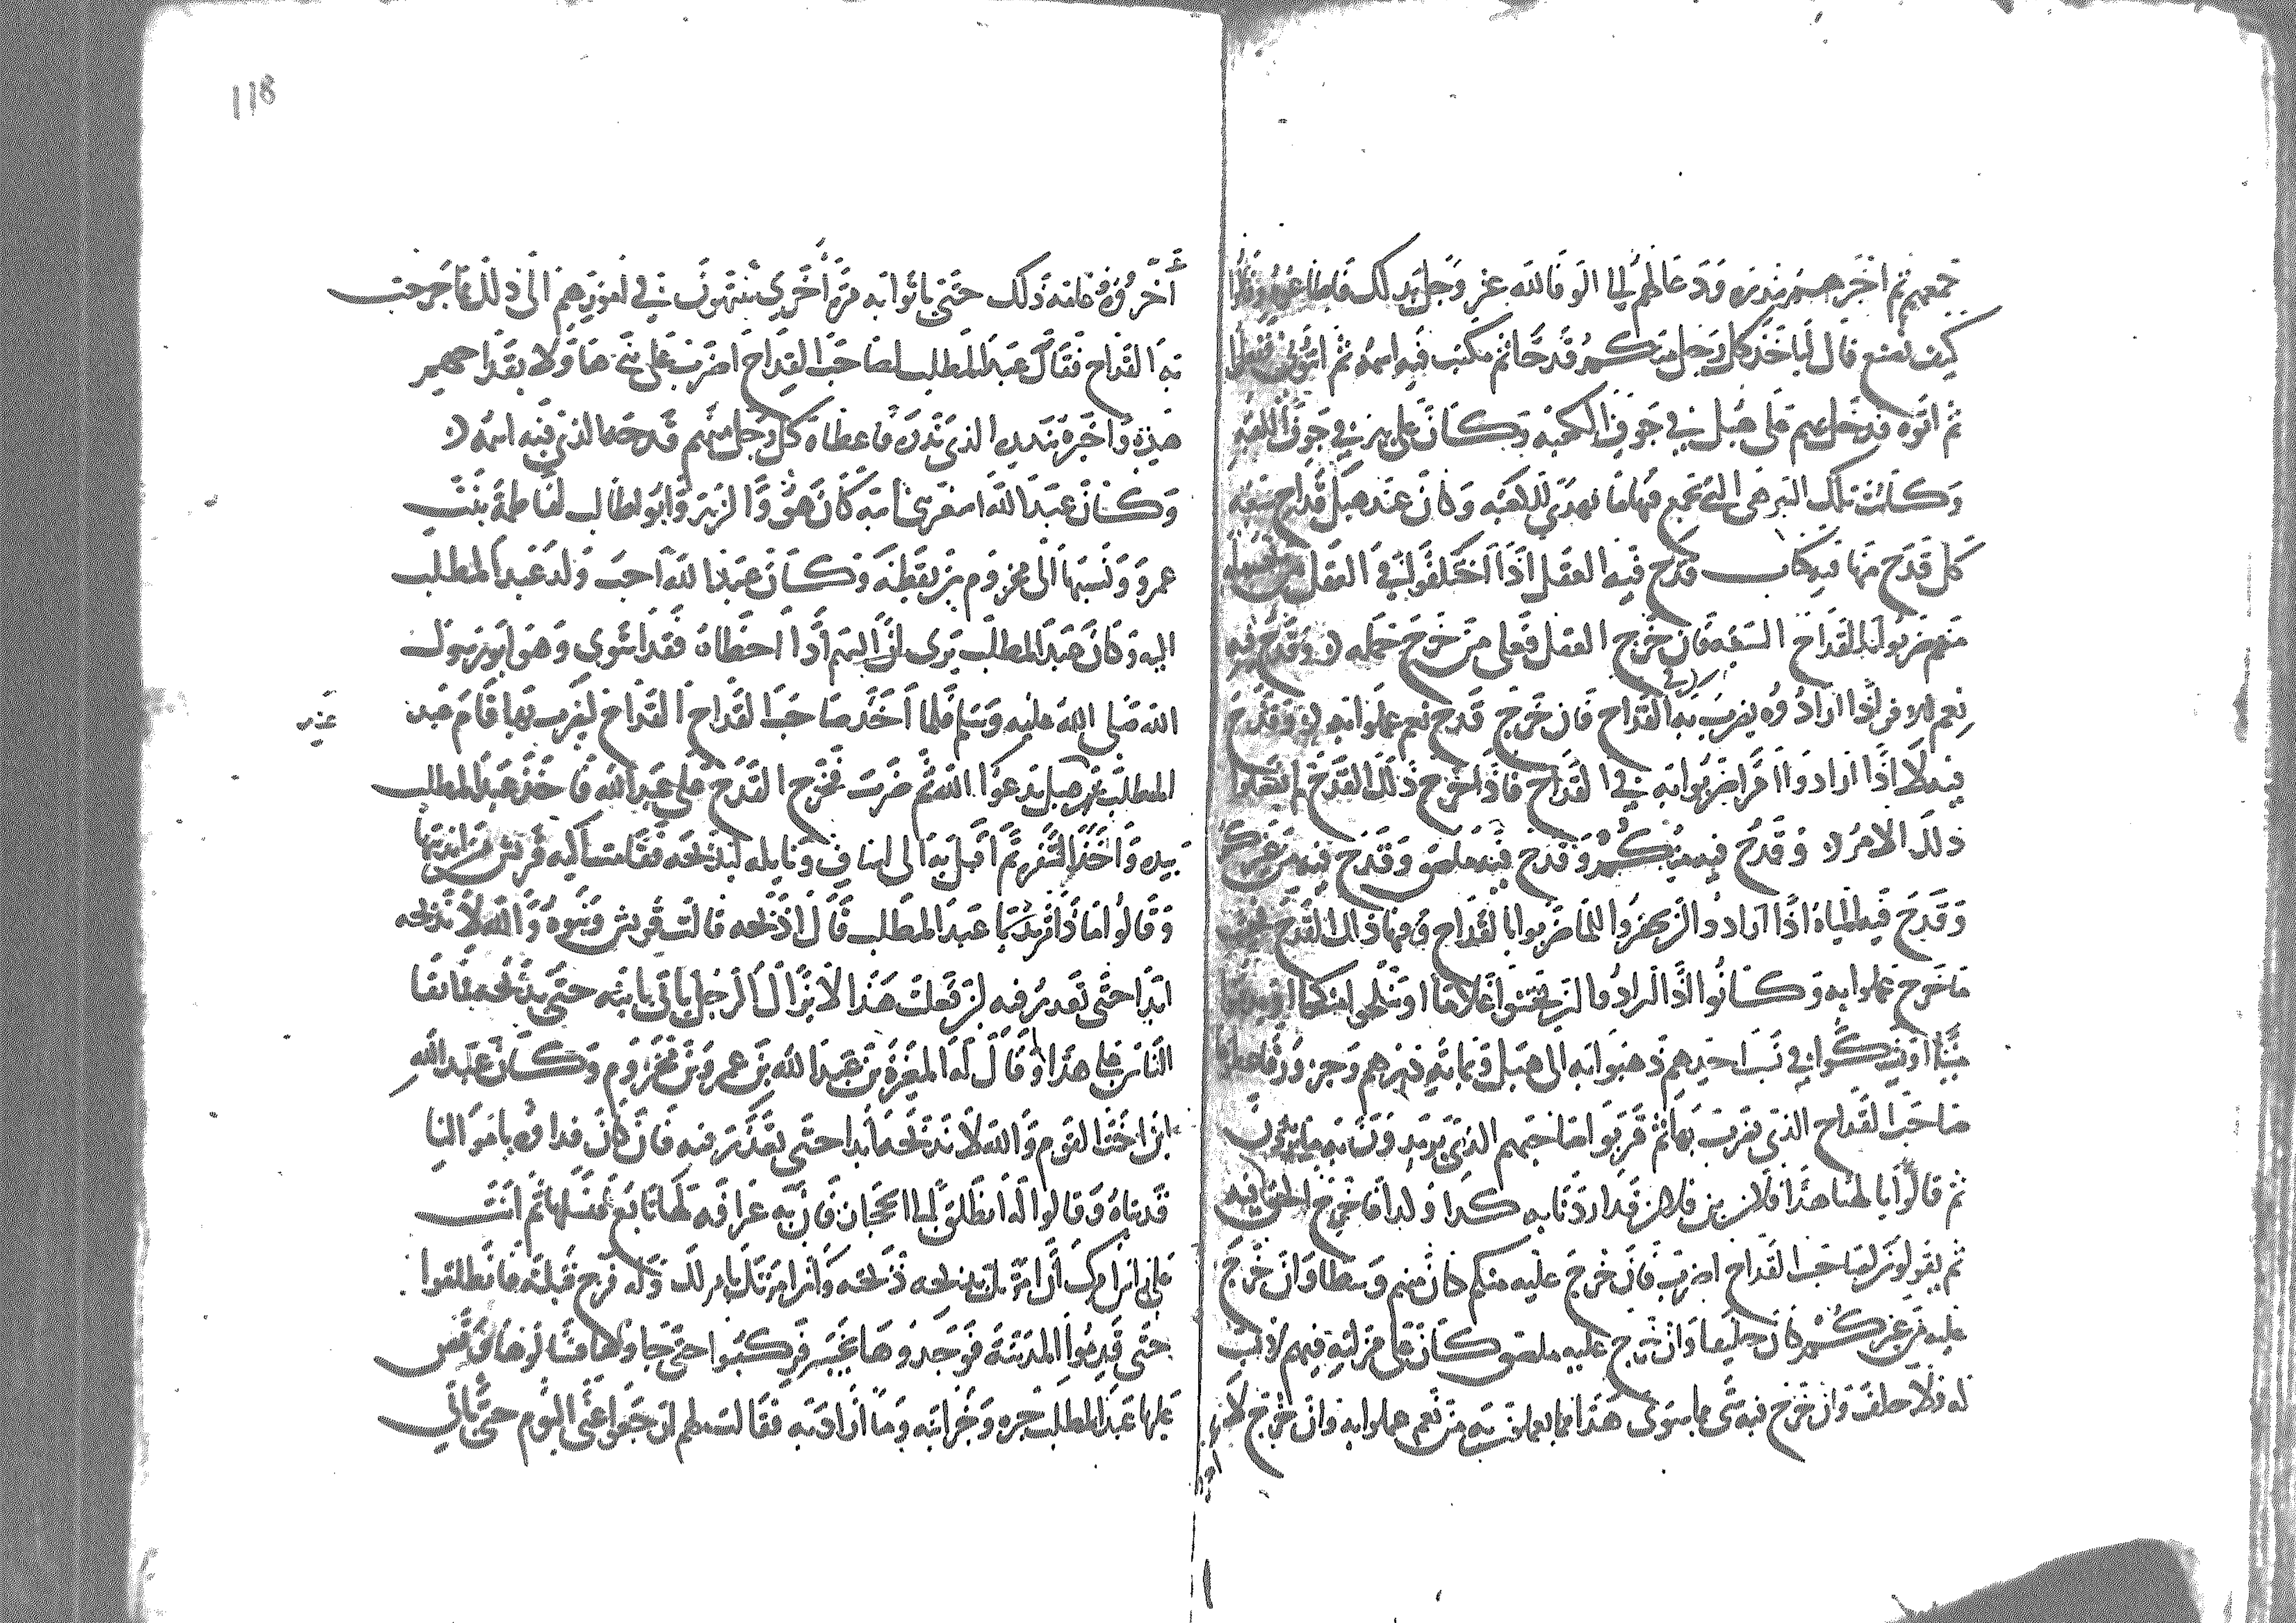 جمعهم ثم اخبرهم بنذره ودعاهم الى الوفا لله عز وجل بذلك فاطاعوه وقالوا
كيف نصنع قال لياخذ كل رجل منكم قدحا ثم يكتب فيه اسمه ثم ائتوني ففعلوا
ثم اتوه فدخل بهم على هبل في جوف الكعبه وكان على بير في جوف الكعبه
وكانت تلك البير هي التي تجمع فيها ما يهدى للكعبه وكان عند هبل قداح سبعه
كل قدح منها فيه كتاب قدح فيه العقل اذا اختلفوا في العقل من يحمله
منهم ضربوا بالقداح السبعه فان خرج العقل فعلى من خرج حمله وقدح فيه
نعم للامر اذا ارادوه يضرب به في القداح فان خرج قدح نعم عملوا به وقدح
فيه لا اذا ارادوا امرا ضربوا به في القداح فاذا خرج ذلك القدح لم يفعلوا
ذلك الامر وقدح فيه منكم وقدح فيه ملصق وقدح فيه من غيركم
وقدح فيه المياه اذا ارادوا ان يحفروا للما ضربوا بالقداح وفيها ذلك القدح فحيث
ما خرج عملوا به وكانوا اذا ارادوا ان يختنوا غلاما او ينكحوا منكحا او يدفنوا
ميتا او شكوا في نسب احدهم ذهبوا به الى هبل وبمايه درهم وجزور فاعطوها
صاحب القداح الذي يضرب بها ثم قربوا صاحبهم الذي يريدون به ما يريدون
ثم قالوا يا الهنا هذا فلان بن فلان قد اردنا به كذا وكذا فاخرج الحق فيه
ثم يقولون لصاحب القداح اضرب فان خرج عليه منكم كان منهم وسيطا وان خرج
عليه من غيركم كان حليفا وان خرج عليه ملصق كان على منزلته فيهم لا نسب
له ولا حلف وان خرج فيه شي مما سوى هذا مما يعملون به من نعم عملوا به وان خرج لا
اخروه
118
اخروه عامه ذلك حتى ياتوا به مرة اخرى ينتهون في امورهم الى ذلك مما خرجت
به القداح فقال عبد المطلب لصاحب القداح اضرب على بني هاولا بقداحهم
هذه واخبره بنذره الذي نذر فاعطاه كل رجل منهم قدحه الذي فيه اسمه
وكان عبد الله اصغر بني ابيه كان هو والزبير وابو طالب لفاطمة بنت
عمرو ونسبها الى مخزوم بن يقظه وكان عبد الله احب ولد عبد المطلب
اليه وكان عبد المطلب يرى ان السهم اذا اخطاه فقد اشوى وهو ابو رسول
الله صلى الله عليه وسلم فلما اخذ صاحب القداح القداح ليضرب بها قام عبد
عند
المطلب عند هبل يدعوا الله ثم ضرب فخرج القدح على عبد الله فاخذ عبد المطلب
بيده واخذ الشفره ثم اقبل به الى اساف ونايله ليذبحه فقامت اليه قريش من انديتها
وقالوا ماذا تريد يا عبد المطلب قال اذبحه قالت قريش وبنوه والله لا تذبحه
ابدا حتى تعذر فيه لين فعلت هذا لا يزال الرجل ياتي بابنه حتى يذبحه فما بقا
الناس على هذا وقال له المغيرة بن عبد الله بن عمرو بن مخزوم وكان عبد الله
ابن اخت القوم والله لا تذبحه ابدا حتى تعذر فيه فان كان فداوه باموالنا
فديناه وقالوا له انطلق الى الحجاز فان به عرافه لها تابع فسلها ثم انت
على راس امرك ان امرتك بذبحه ذبحته وان امرتك بامر لك وله فرج قبلته فانطلقوا
حتى قدموا المدينة فوجدوها بخيبر فركبوا حتى جاوها فسالوها وقص
عليها عبد المطلب خبره وخبر ابنه وما اراد به فقالت لهم ارجعوا عني اليوم حتى ياتي